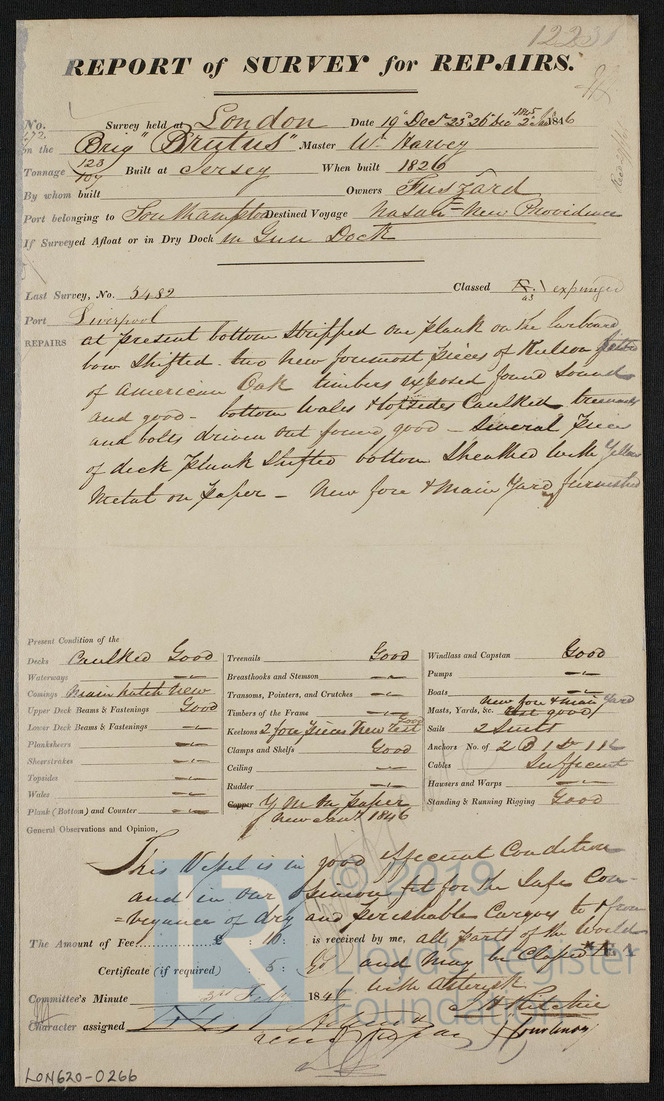 12231
REPORT of SURVEY for REPAIRS.
No. Survey held at London Date 19th Decr 23d 26th Dec 1845 2d Jany 1846
on the Brig "Brutus" Master Wm Harvey
Tonnage 123 107 Built at Jersey When built 1826
By whom built Owners Fuszard
Port belonging to Southampton Destined Voyage Nasau New Providence
If Surveyed Afloat or in Dry Dock in Gun Dock
Last Survey, No. 5482 Classed 43 expunged
Port Liverpool
REPAIRS at present bottom stripped one plank on the larboard
bow shifted - two new foremost pieces of Keelson fitted
of American Oak timbers exposed found sound
and good - bottom Wales & topsides Caulked treenails
and bolts driven out found good - Several pieces
of deck plank shifted bottom sheathed with Yellow
Metal on paper - New fore & Main Yard furnished
Present Condition of the
Decks Caulked Good
Waterways
Comings Main hatch New
Upper Deck Beams & Fastenings Good
Lower Deck Beams & Fastenings
Planksheers
Sheerstrakes
Topsides
Wales
Plank (Bottom) and Counter
Treenails Good
Breasthooks and Stemson
Transoms, Pointers, and Crutches
Timbers of the Frame
Keelsons 2 fore pieces New rest Good
Clamps and Shelfs Good
Ceiling
Rudder
Copper Y M on paper
New Jany 1846
Windlass and Capstan Good
Pumps
Boats
Masts, Yards, &c. New fore & Main Yard rest good
Sails 2 Suits
Anchors No. of 2 B 1 St 1 K
Cables Sufficient
Hawsers and Warps
Standing & Running Rigging Good
General Observations and Opinion,
This Vessel is in good efficient Condition
and in our opinion fit for the Safe Con-
=veyance of dry and perishable Cargoes to & from
The Amount of Fee £ : 10 : is received by me, all parts of the World
Certificate (if required) : 5 : and may be Classed *E 1
with asterisk
Committee's Minute 3rd Feby 1846
Character assigned
J H Ritchie
Courtenay
LON620-0266
© 2019
Lloyd's Register
Foundation
LR